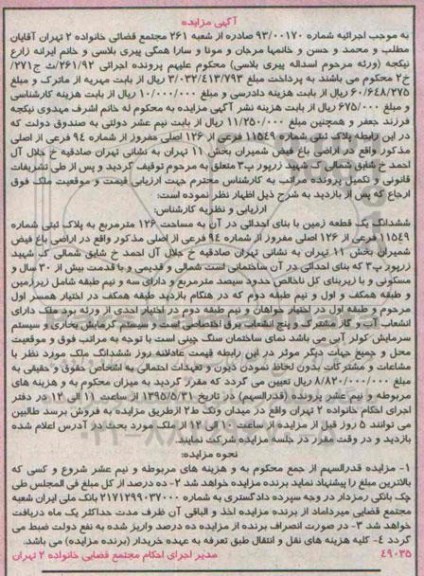 آگهی مزایده
به موجب اجرائیه شماره ۹۳/۰۰۱۷۰ صادره از شعبه ۲۶۱ مجتمع قضائی خانواده ۲ تهران آقایان
مطلب و محمد و حسن و خانمها مرجان و مونا و سارا همگی پیری بلاسی و خانم ایرانه زارع
نیکجه (ورثه مرحوم اسداله پیری بلاسی) محکوم علیهم پرونده اجرائی ۲۶۱/۹۲/ث ج/۲۷۱/
خ۲ محکوم می باشند به پرداخت مبلغ ۳/۰۳۲/۴۱۳/۷۹۳ ریال از بابت مهریه از ماترک و مبلغ
۶۰/۶۴۸/۲۷۵ ریال از بابت هزینه دادرسی و مبلغ ۱۰/۰۰۰/۰۰۰ ریال از بابت هزینه کارشناسی
و مبلغ ۶۷۵/۰۰۰ ریال از بابت هزینه نشر آگهی مزایده به محکوم له خانم اشرف مهدوی نیکجه
فرزند جعفر و همچنین مبلغ ۱۱/۲۵۰/۰۰۰ ریال از بابت نیم عشر دولتی به صندوق دولت که
در این رابطه پلاک ثبتی شماره ۱۱۵۴۹ فرعی از ۱۲۶ اصلی مفروز از شماره ۹۴ فرعی از اصلی
مذکور واقع در اراضی باغ فیض شمیران بخش ۱۱ تهران به نشانی تهران صادقیه خ جلال آل
احمد خ شایق شمالی ک شهید زرپور پ۳ متعلق به مرحوم توقیف گردید و پس از طی تشریفات
قانونی و تکمیل پرونده مراتب به کارشناس محترم جهت ارزیابی قیمت و موقعیت ملک فوق
ارجاع که پس از بازدید به شرح ذیل اظهار نظر نموده است:
ارزیابی و نظریه کارشناس:
ششدانگ یک قطعه زمین با بنای احداثی در آن به مساحت ۱۲۶ مترمربع به پلاک ثبتی شماره
۱۱۵۴۹ فرعی از ۱۲۶ اصلی مفروز از شماره ۹۴ فرعی از اصلی مذکور واقع در اراضی باغ فیض
شمیران بخش ۱۱ تهران به نشانی تهران صادقیه خ جلال آل احمد خ شایق شمالی ک شهید
زرپور پ۳ که بنای احداثی در آن ساختمانی است شمالی و قدیمی و با قدمت بیش از ۳۰ سال و
مسکونی و با زیربنای کل ناخالص حدود سیصد مترمربع و دارای سه و نیم طبقه شامل زیرزمین
و طبقه همکف و اول و نیم طبقه دوم که در هنگام بازدید طبقه همکف در اختیار همسر اول
مرحوم و طبقه اول در اختیار خواهان و نیم طبقه دوم در اختیار احدی از ورثه بود ملک دارای
انشعاب آب و گاز مشترک و پنج انشعاب برق اختصاصی است و سیستم گرمایش بخاری و سیستم
سرمایش کولر آبی می باشد نمای ساختمان سنگ چینی است با توجه به مراتب فوق و موقعیت
محل و جمیع جهات دیگر موثر در این رابطه قیمت عادلانه روز ششدانگ ملک مورد نظر با
مشاعات و مشترکات بدون لحاظ نمودن دیون و تعهدات احتمالی به اشخاص حقوق و حقیقی به
مبلغ ۸/۸۲۰/۰۰۰/۰۰۰ ریال تعیین می گردد که مقرر گردید به میزان محکوم به و هزینه های
مربوطه و نیم عشر پرونده (قدرالسهم) در تاریخ ۱۳۹۵/۵/۳۱ از ساعت ۱۱ الی ۱۲ در دفتر
اجرای احکام خانواده ۲ تهران واقع در میدان ونک ط۲ ازطریق مزایده به فروش برسد طالبین
می توانند ۵ روز قبل از مزایده از ساعت ۱۰ الی ۱۲ از ملک مورد بحث در آدرس اعلام شده
بازدید و در وقت مقرر در جلسه مزایده شرکت نمایند
نحوه مزایده:
۱- مزایده قدرالسهم از جمع محکوم به و هزینه های مربوطه و نیم عشر شروع و کسی که
بالاترین مبلغ را پیشنهاد نماید برنده مزایده خواهد شد ۲- ده درصد از کل مبلغ فی المجلس طی
چک بانکی رمزدار در وجه سپرده دادگستری به شماره ۲۱۷۱۲۹۹۰۳۷۰۰۰ بانک ملی ایران شعبه
مجتمع قضایی میرداماد از برنده مزایده اخذ و الباقی آن ظرف مدت حداکثر یک ماه دریافت
خواهد شد ۳- در صورت انصراف برنده از مزایده ده درصد واریز شده به نفع دولت ضبط می
گردد ۴- کلیه هزینه های نقل و انتقال طبق تعرفه به عهده خریدار (برنده مزایده) می باشد.
۴۹۰۳۵ مدیر اجرای احکام مجتمع قضایی خانواده ۲ تهران